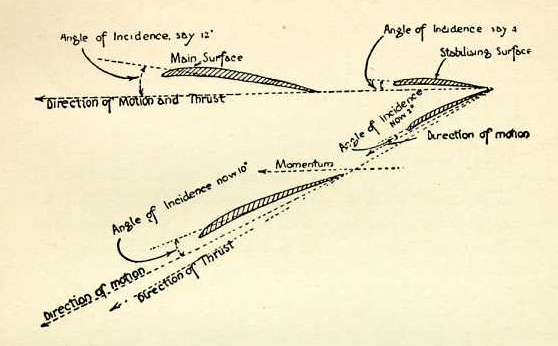 Angle of Incidence, say 12°
Angle of Incidence say 4
Main Surface
Stabilising Surface
Direction of Motion and Thrust
Angle of Incidence
now 2°
Direction of motion
Momentum
Angle of Incidence now 10°
Direction of motion
Direction of Thrust